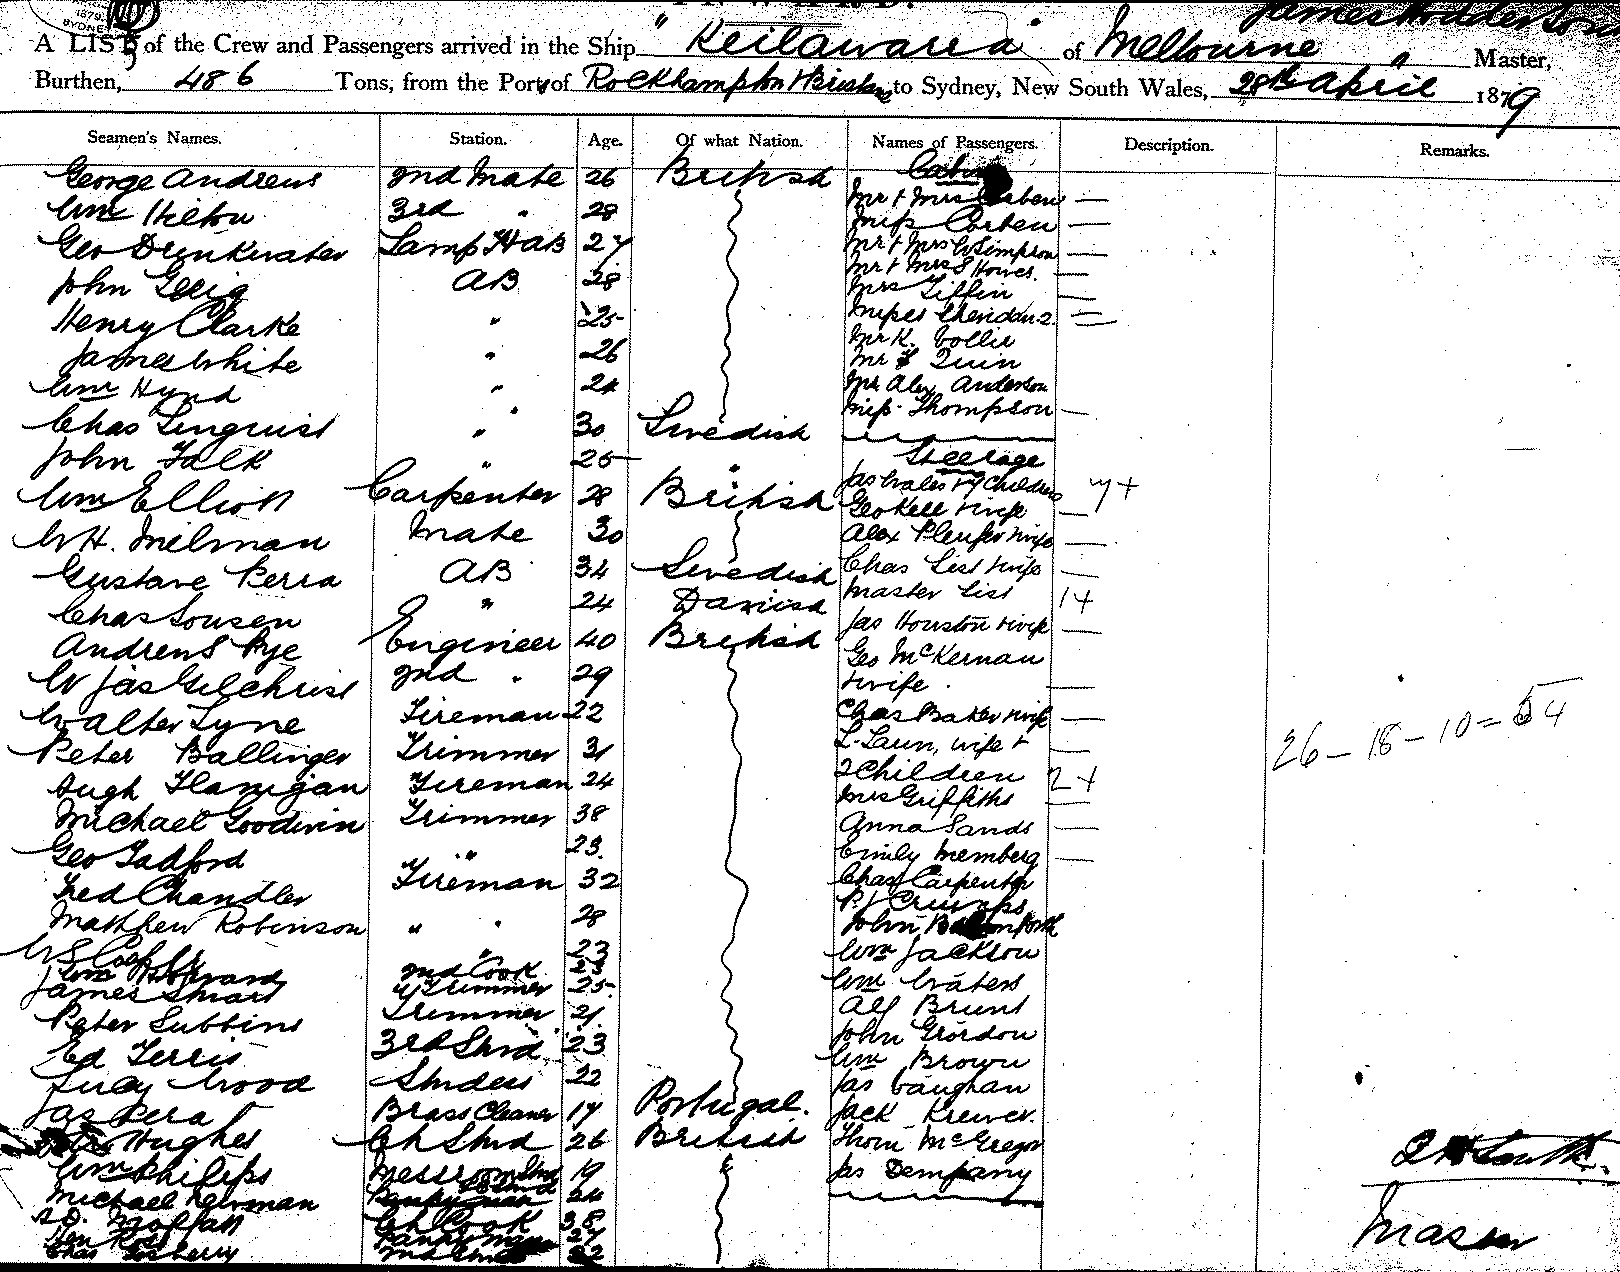 1879
SYDNEY
James Hodder
A LIST of the Crew and Passengers arrived in the Ship "Keilawarra" of Melbourne
Burthen, 486 Tons, from the Port of Rockhampton + to Sydney, New South Wales, 28th April 1879
Master,
Seamen's Names. Station. Age. Of what Nation. Names of Passengers. Description. Remarks.
George Andrews 2nd Mate 26 British Cabin
Wm Hilton 3rd " 28 Mr + Mrs Corben —
Geo Drinkwater Lamp + AB 27 Miss Corben —
Mr + Mrs W Simpson —
John AB 28 Mr + Mrs S Howes. —
Mrs Tiffin —
Henry Clarke " 25 Misses Sheridan 2. —
James White " 26 Mr K. Collie
Mr Quin
Wm Hynd " 24 Mr Alex Anderson
Chas Linquist " 30 Swedish Miss Thompson —
John Falk " 25 " Steerage
Wm Elliott Carpenter 28 British Jas Wales + 7 Children 7+
Geo Kell + wife —
W H. Milman Mate 30 Alex + wife —
Gustave Perra AB 34 Swedish Chas List + wife —
Chas Sousen " 24 Danish Master List 1+
Andrew S Pye Engineer 40 British Jas Houston + wife —
W Jas Gilchrist 2nd " 29 Geo McKernan
+ wife —
Walter Lyne Fireman 22 Chas Baker + wife —
Peter Ballinger Trimmer 31 L. Laun, wife + —
Hugh Flanigan Fireman 24 2 Children 2+
26 – 18 – 10 = 54
Michael Goodwin Trimmer 38 Mrs Griffiths —
Geo Tadford " 23. Anna Sands —
Emily Memberg —
Fred Chandler Fireman 32 Chas Carpenter
Matthew Robinson " " 28 John
W S " 23 Wm Jackson
Wm 2nd Cook 23
James Stuart Trimmer 25 Wm Waters
Peter Subbins Trimmer 21 Alf Brunt
Ed Ferris 3rd Stwd 23 John Gordon
Wm Brown
Lucy Wood Studess 22 Jas Vaughan
Jas Pera Brass Cleaner 17 Portugal. Jack Krewer.
Hughes Ch Stwd 26 British Thom McGregor
Wm Philips Messroom Stwd 19 Jas Dempany
Michael Newman 24
Moffatt Ch Cook 38
Pantry man
Chas 2nd 22
Mason